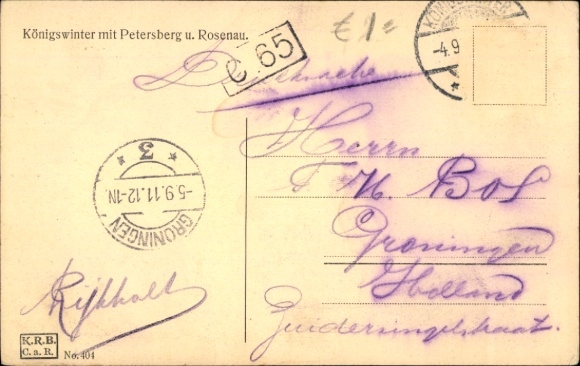 Königswinter mit Petersberg u. Rosenau.
€ 1=
C 65
-4.9
Drucksache
Herrn
T. H. Bos
Groningen
Holland
Zuidersingelstraat.
GRONINGEN
-5.9.11.12-1N.
3
Rijkholt
K.R.B.
C.a.R.
No. 404